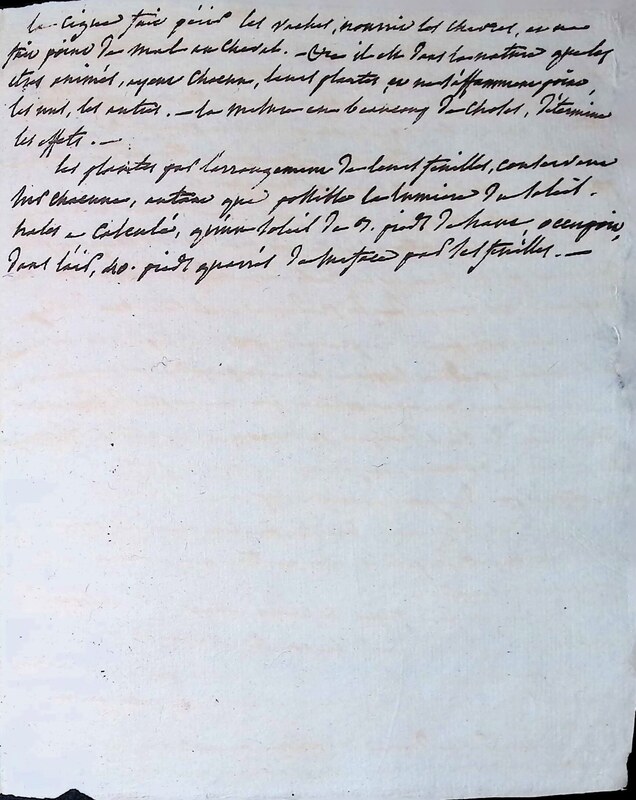 la Cigue fait périr les vaches, nourrit les chevres, et ne
fait point de mal au Cheval. - Or il est dans la nature que les
etres animés, ayent Chacun, leurs plantes, et ne s'affamment point,
les uns, les autres. - la mesure en beaucoup de choses, détermine
les effets. -
les plantes par l'arrangement de leurs feuilles, conservent
chacune, autant que possible la lumiere du soleil.
hales a Calculé, qu'un soleil de pieds de haut, occupoit,
dans l'air, 40. pieds quarrés de surface par ses feuilles. -